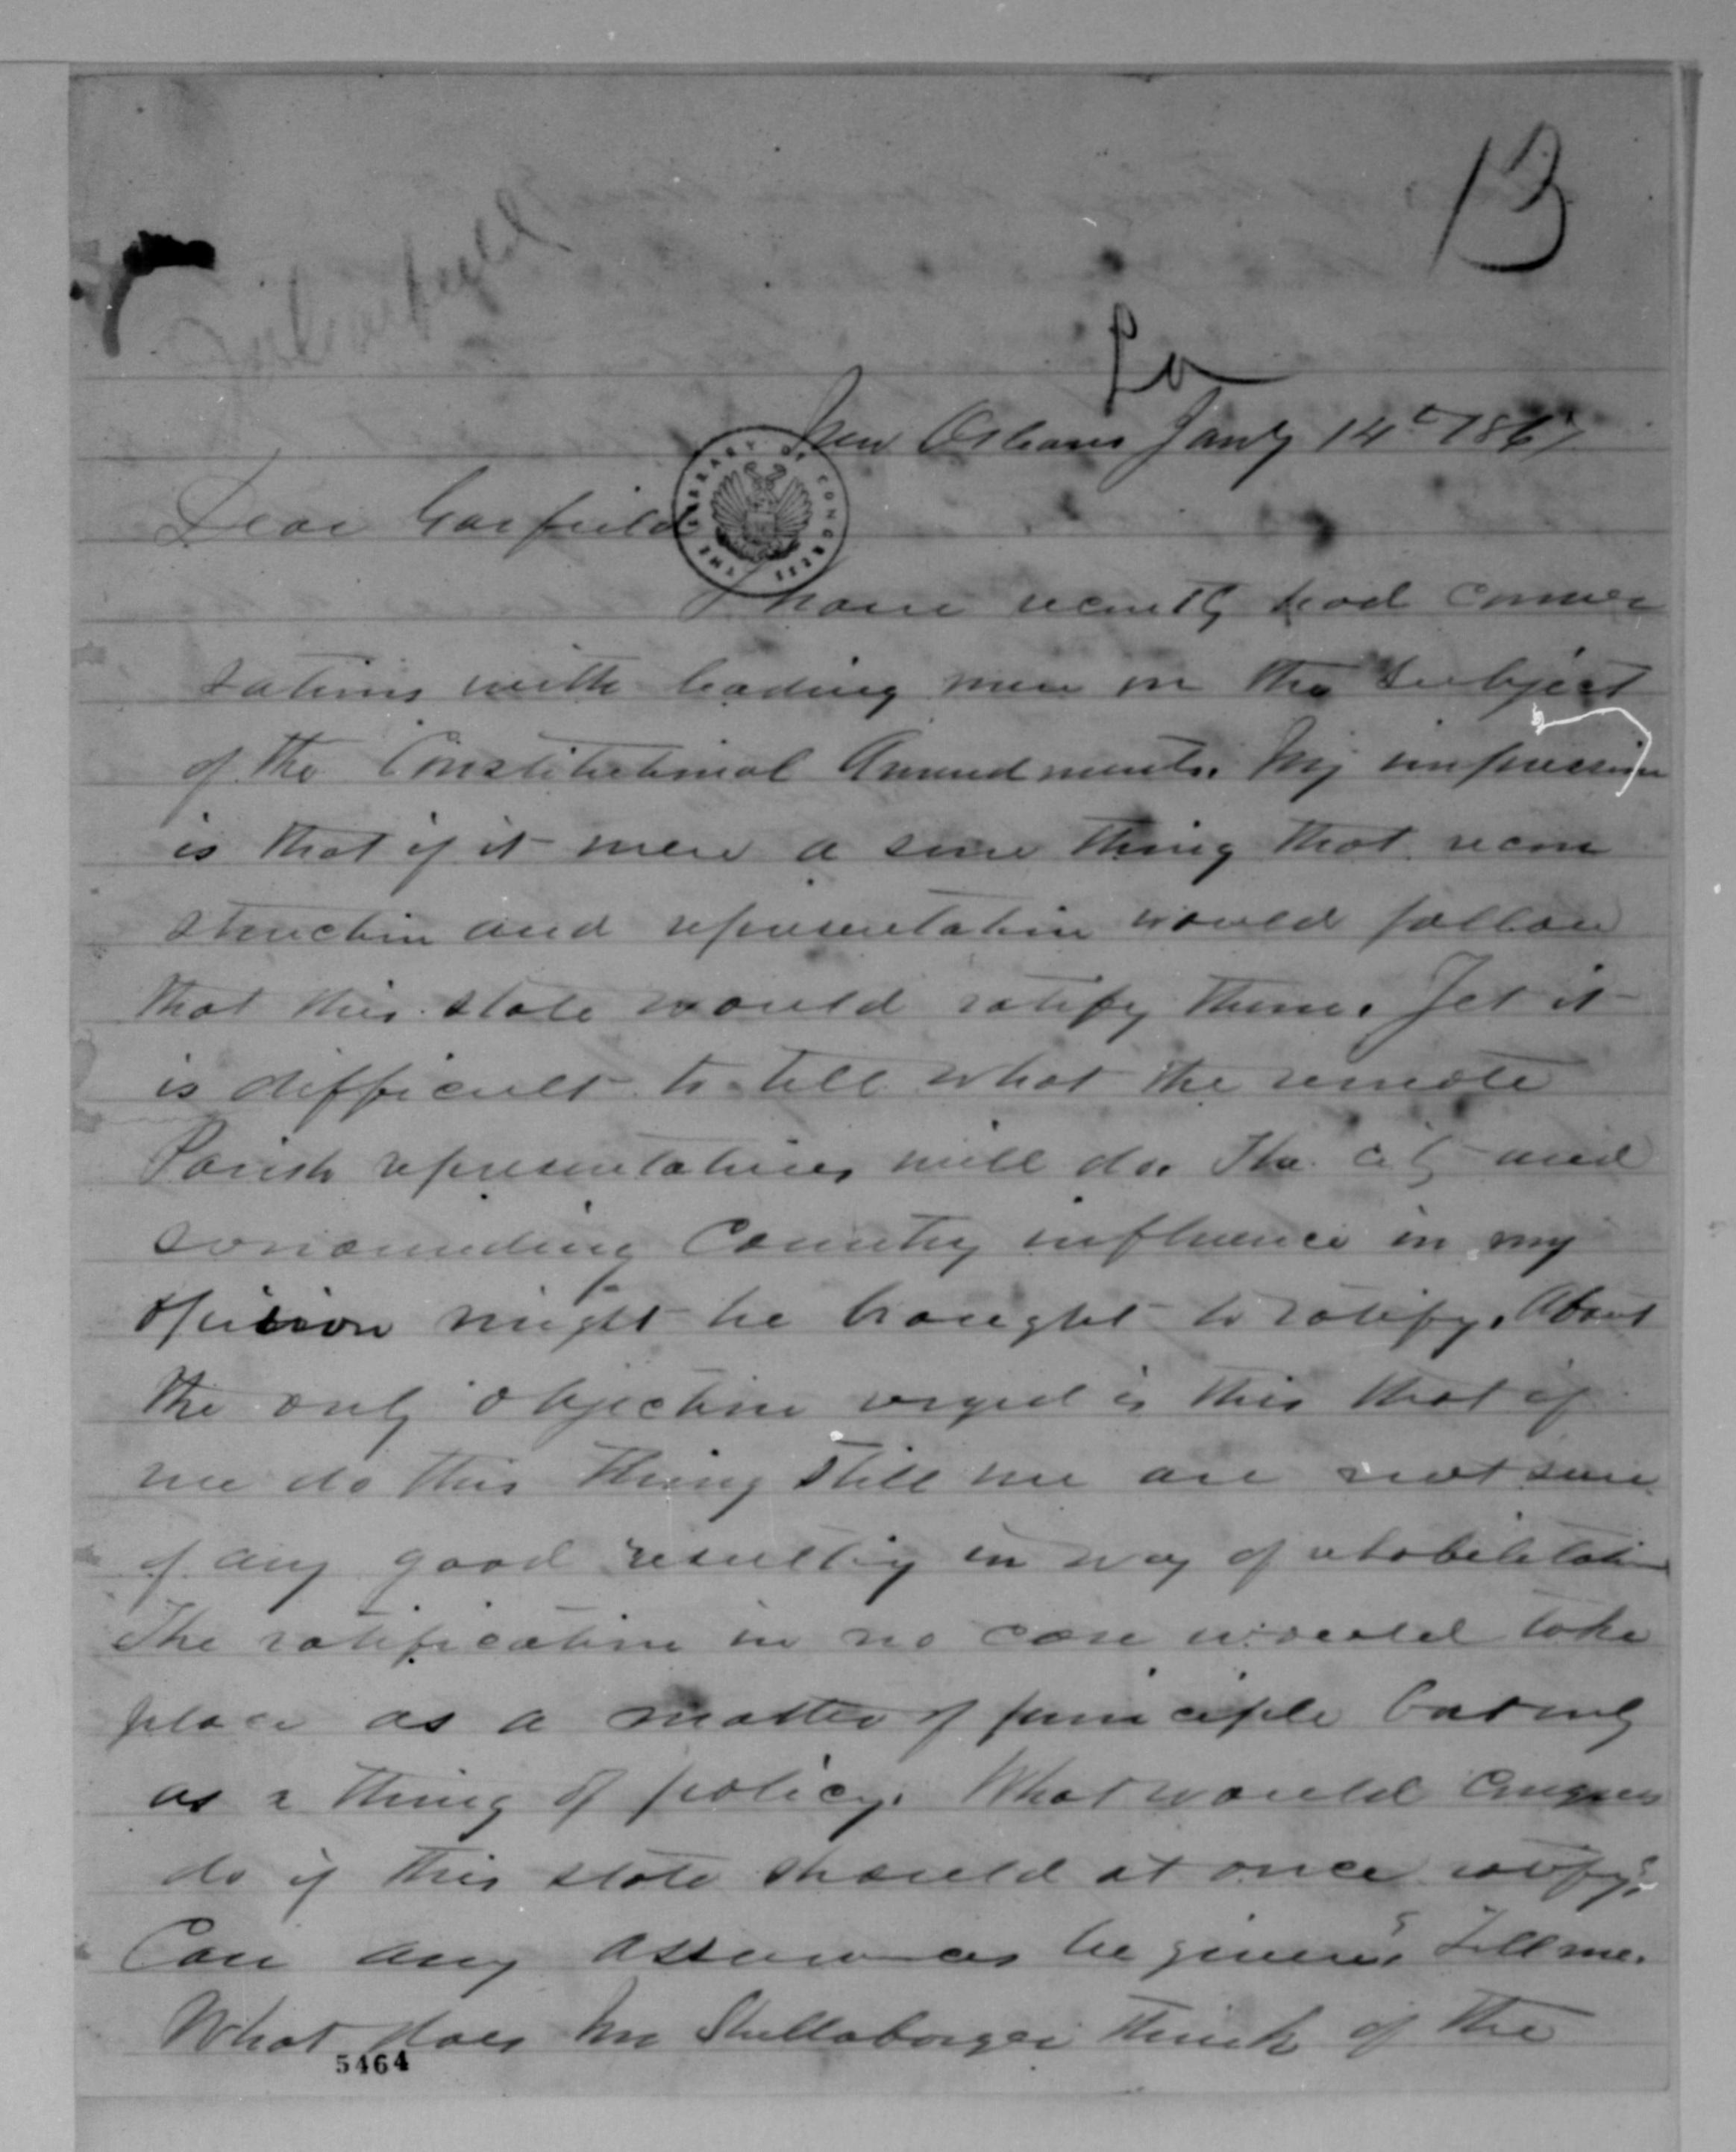 13
La
New Orleans Jany 14th 1867
Dear Garfield
THE LIBRARY OF CONGRESS
I have recently had conver
sations with leading men on the subject
of the Constitutional Amendments. My impression
is that if it were a sure thing that recon
struction and representation would follow
that this state would ratify them. Yet it
is difficult to tell what the remote
Parish representatives will do. The city and
surrounding Country influence in my
opinion might be brought to ratify. About
the only objection urged is this that if
we do this thing still we are not sure
of any good resulting in way of rehabilitation
The ratification in no case would take
place as a matter of principle but only
as a thing of policy. What would Congress
do if this state should at once ratify?
Can any assurances be given? Tell me.
What does Mr Shellabarger think of the
5464